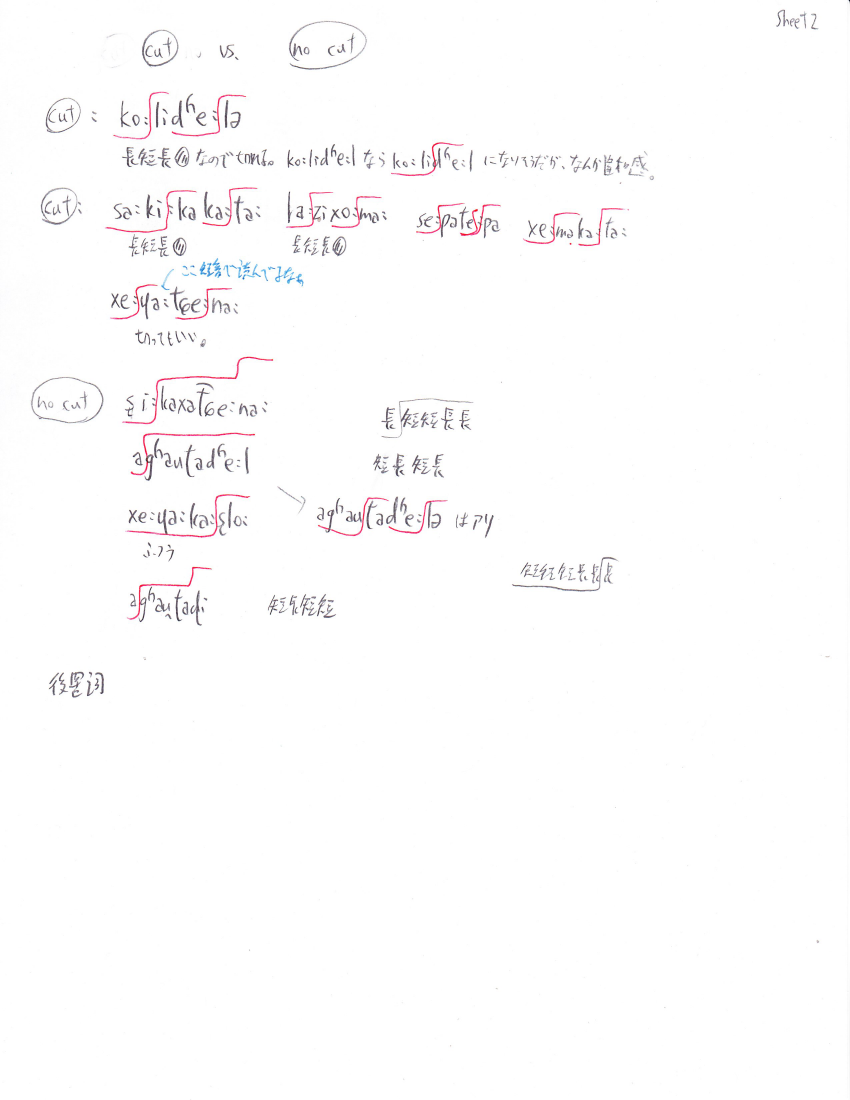 Sheet 2
cut vs. no cut
cut : ko:lidʰe:la
長短長 なので切れる。 ko:lidʰe:l なら ko:lidʰe:l になりそうだが、なんか違和感。
cut: sa:ki:kaka:ta: la:zixo:ma: se:pate:pa xe:maka:ta:
長短長 長短長
ここ短音で読んでるなぁ
xe:ya:tɕe:na:
切ってもいい。
no cut ʂi:kaxatɕe:na: 長短短長長
agʰautadʰe:l 短長短長
xe:ya:ka:slo: agʰautadʰe:la はアリ
ふつう
短短短長長長
agʰautadi 短長短短
後置詞